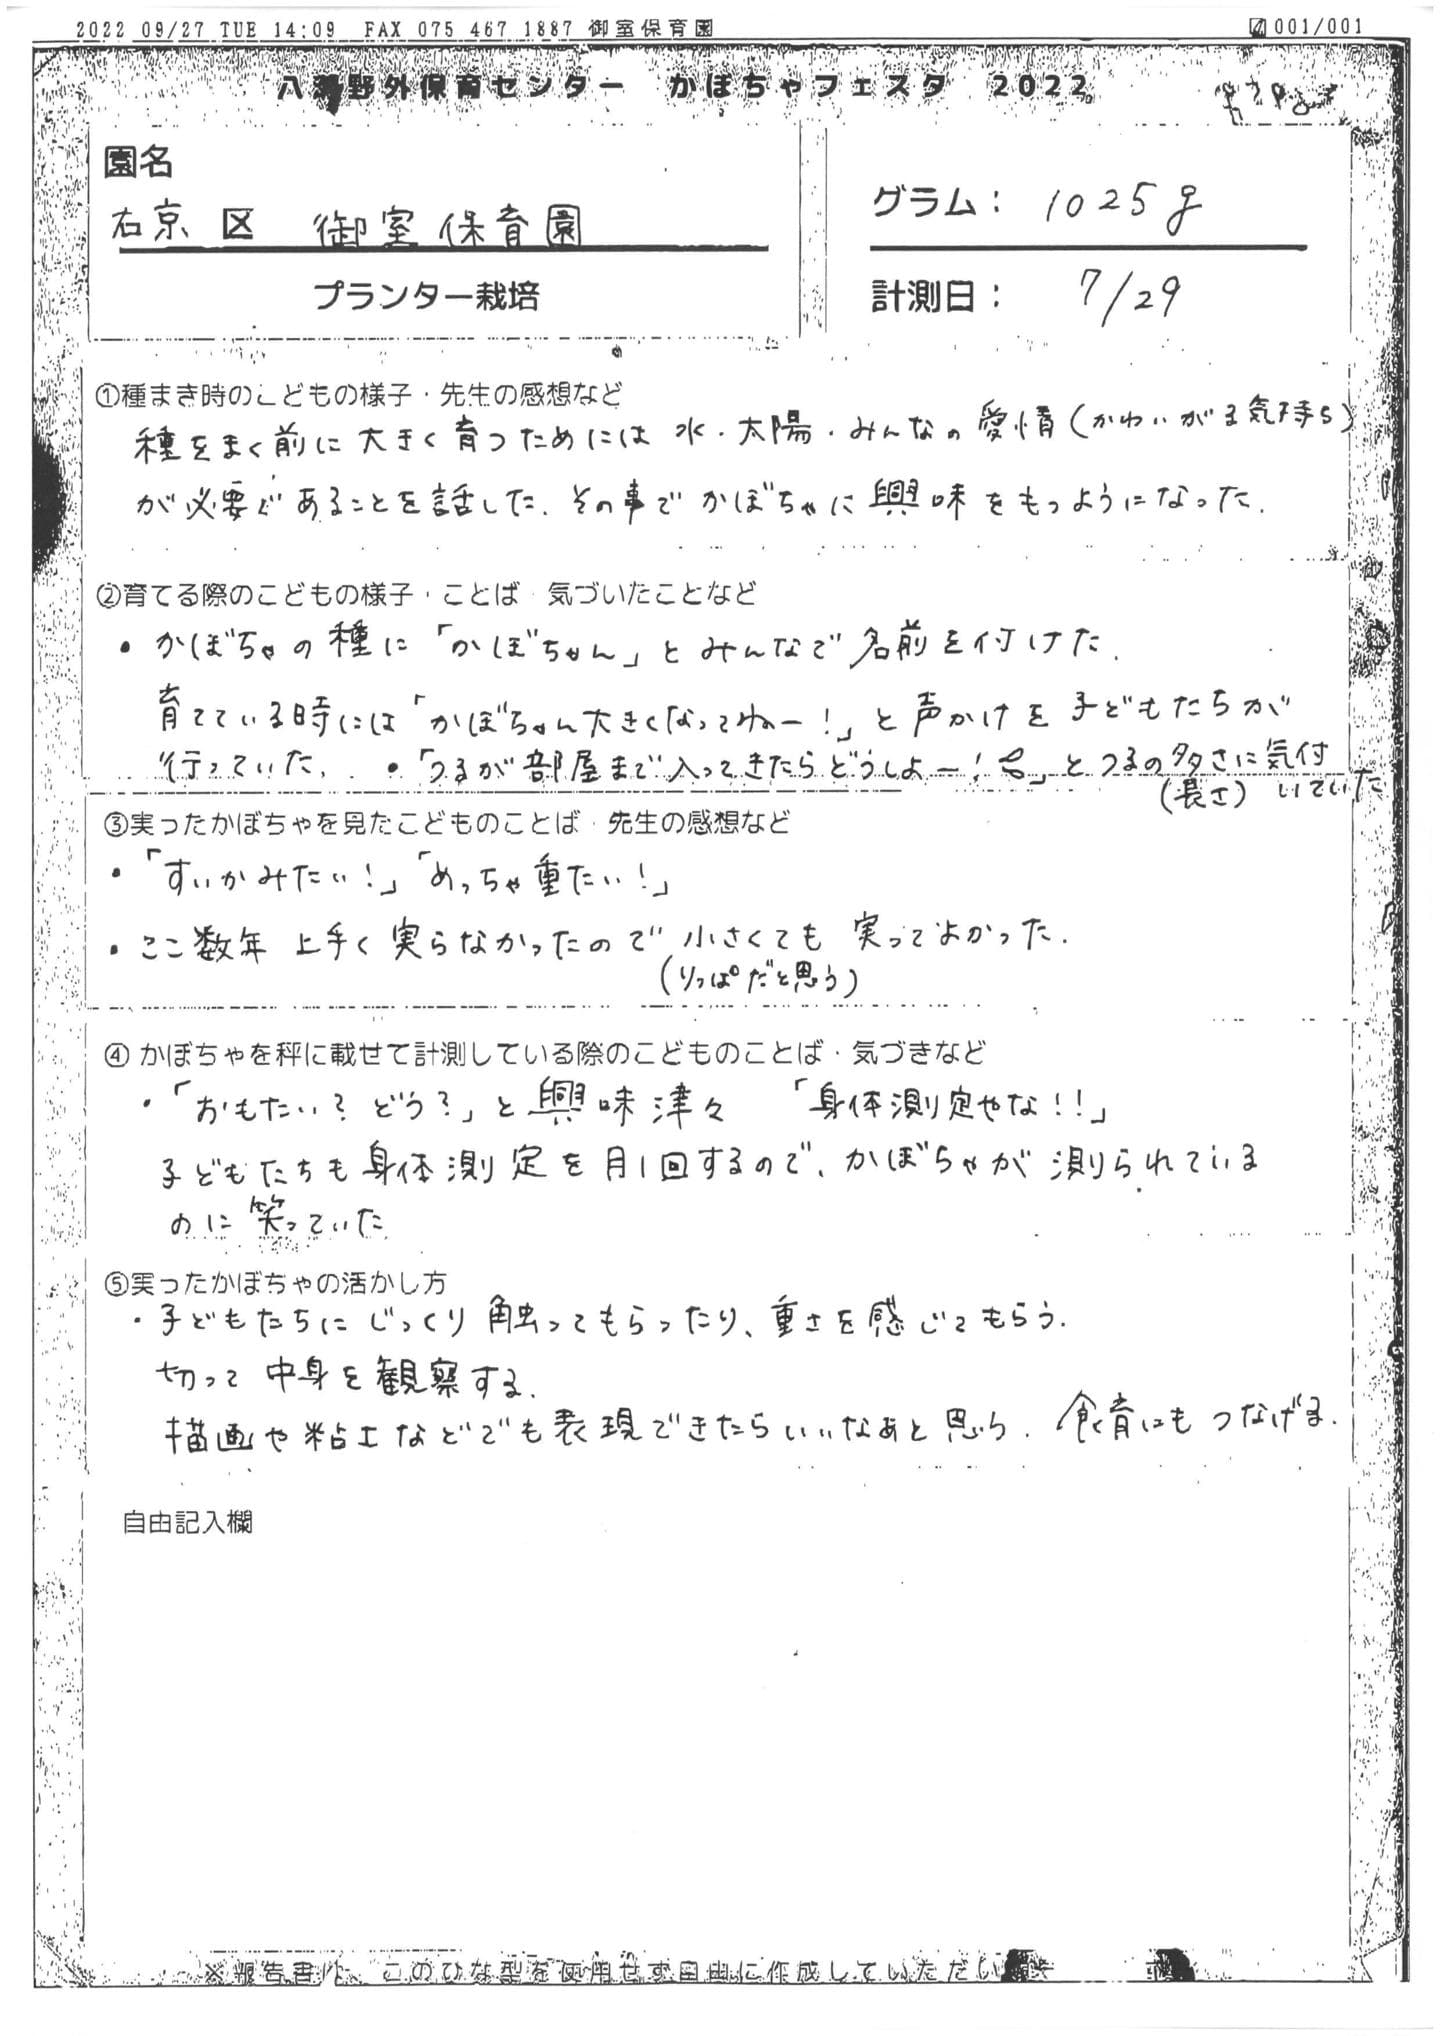 2022 09/27 TUE 14:09 FAX 075 467 1887 御室保育園 001/001
八瀬野外保育センター かぼちゃフェスタ 2022
園名
右京区 御室保育園
プランター栽培
グラム： 1025g
計測日： 7/29
①種まき時のこどもの様子・先生の感想など
種をまく前に大きく育つためには水・太陽・みんなの愛情（かわいがる気持ち）
が必要であることを話した。その事でかぼちゃに興味をもつようになった。
②育てる際のこどもの様子・ことば・気づいたことなど
・かぼちゃの種に「かぼちゃん」とみんなで名前を付けた。
育てている時には「かぼちゃん大きくなってねー！」と声かけを子どもたちが
行っていた。 ・「つるが部屋まで入ってきたらどうしよー！」とつるの多さに気付
（長さ） いていた
③実ったかぼちゃを見たこどものことば・先生の感想など
・「すいかみたい！」「めっちゃ重たい！」
・ここ数年 上手く実らなかったので小さくても実ってよかった。
（りっぱだと思う）
④かぼちゃを秤に載せて計測している際のこどものことば・気づきなど
・「おもたい？どう？」と興味津々 「身体測定やな！！」
子どもたちも身体測定を月1回するので、かぼちゃが測られている
のに笑っていた
⑤実ったかぼちゃの活かし方
・子どもたちにじっくり触ってもらったり、重さを感じてもらう。
切って中身を観察する。
描画や粘土などでも表現できたらいいなぁと思う。食育にもつなげる。
自由記入欄
※報告書は、このひな型を使用せず自由に作成していただい